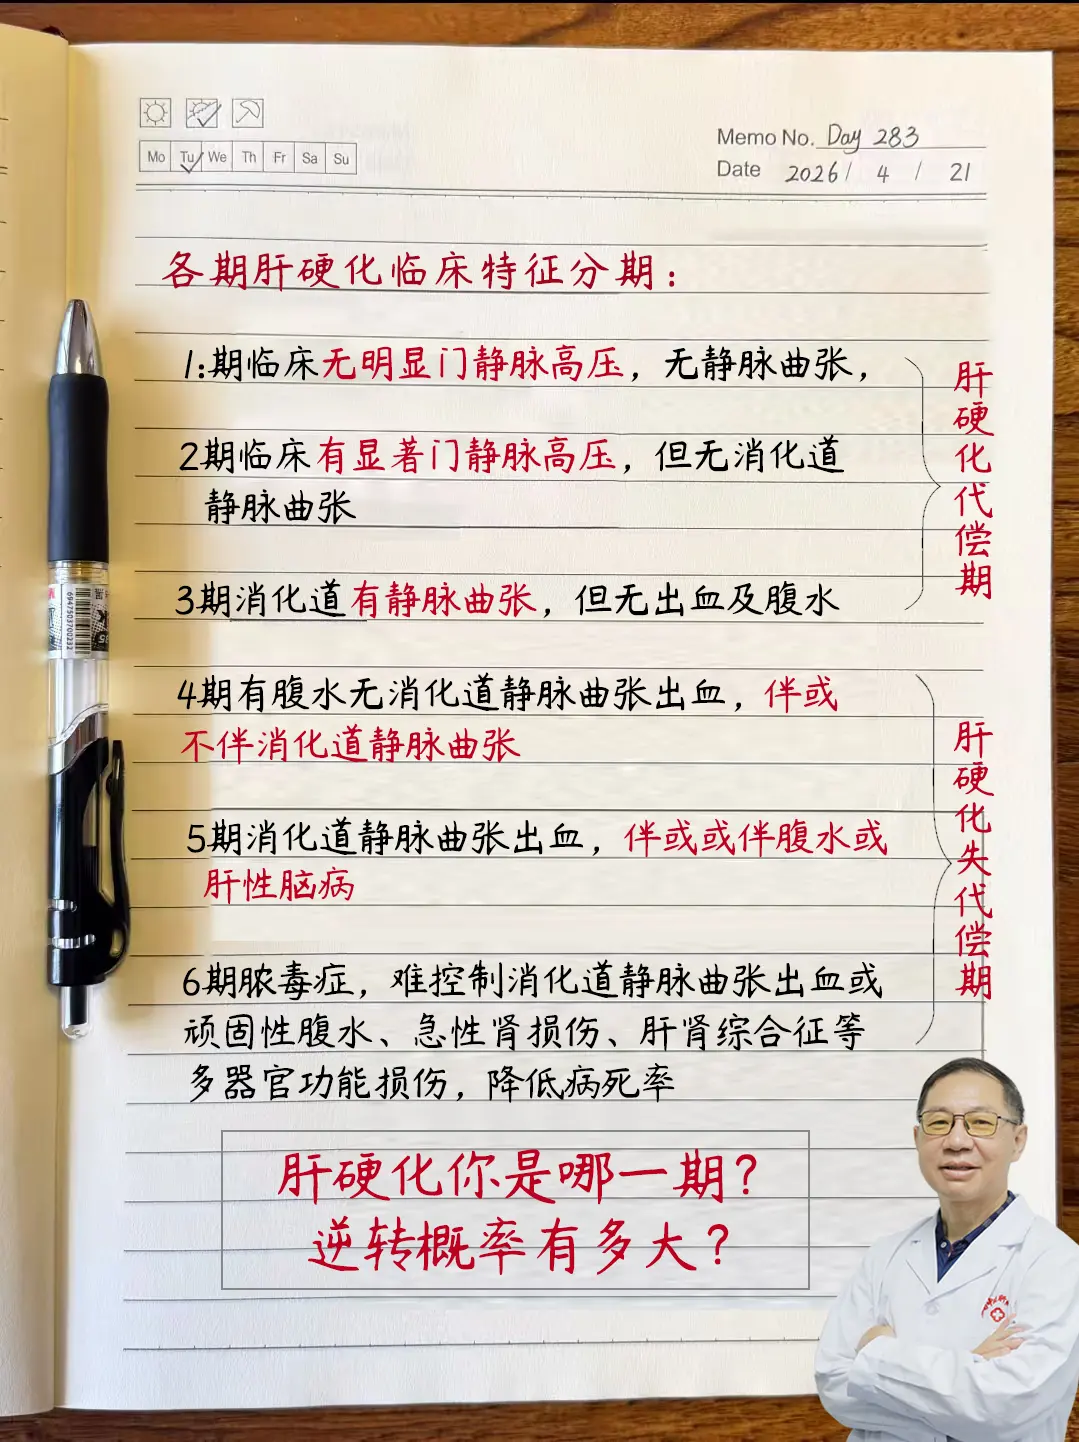 Memo No. Day 283
Mo Tu We Th Fr Sa Su
Date 2026 / 4 / 21
各期肝硬化临床特征分期：
1:期临床无明显门静脉高压，无静脉曲张，
2期临床有显著门静脉高压，但无消化道
静脉曲张
3期消化道有静脉曲张，但无出血及腹水
肝硬化代偿期
4期有腹水无消化道静脉曲张出血，伴或
不伴消化道静脉曲张
5期消化道静脉曲张出血，伴或或伴腹水或
肝性脑病
6期脓毒症，难控制消化道静脉曲张出血或
顽固性腹水、急性肾损伤、肝肾综合征等
多器官功能损伤，降低病死率
肝硬化失代偿期
肝硬化你是哪一期？
逆转概率有多大？
6947503700232